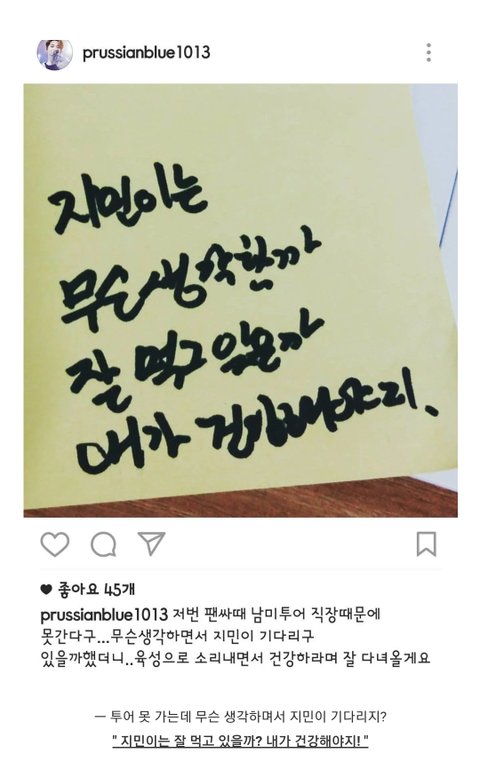 prussianblue1013
지민이는
무슨생각할까
잘 먹구 있을까
애가 건강해야지.
좋아요 45개
prussianblue1013 저번 팬싸때 남미투어 직장때문에
못간다구...무슨생각하면서 지민이 기다리구
있을까했더니..육성으로 소리내면서 건강하라며 잘 다녀올게요
ㅡ 투어 못 가는데 무슨 생각하며서 지민이 기다리지?
" 지민이는 잘 먹고 있을까? 내가 건강해야지! "